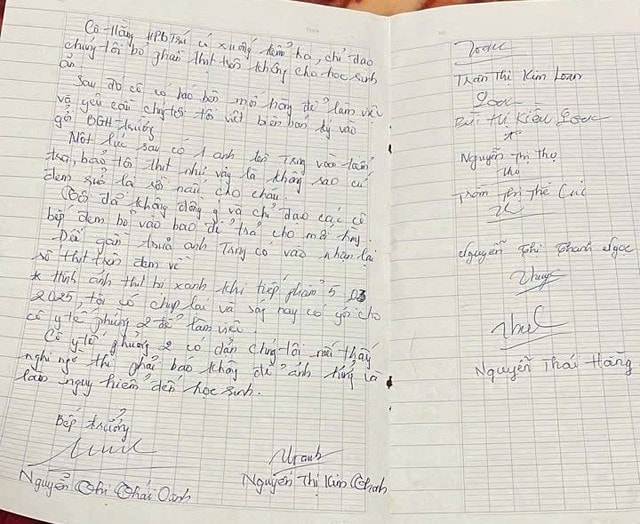 Cô Hằng HPBTrú có xuống kiểm tra, chỉ đạo
chúng tôi bỏ phần thịt trên không cho học sinh
ăn.
Sau đó cô có báo bên mối hàng để làm việc
và yêu cầu chúng tôi viết biên bản ký vào
gởi BGH trường
Một lúc sau có 1 anh tên Trung vào kiểm
tra, bảo tôi thịt như vậy là không sao cứ
đem rửa là rồi nấu cho cháu.
Cô đó không đồng ý và chỉ đạo các cô
bếp đem bỏ vào bao để trả cho mối hàng.
Đến gần trưa anh Trung có vào nhận lại
số thịt trên đem về
* Hình ảnh thịt bị xanh khi tiếp phẩm 5 03
2025, tôi có chụp lại và sáng nay có gởi cho
cô y tế phường 2 để làm việc.
Cô y tế phường 2 có dặn chúng tôi nếu thấy
nghi ngờ thì phải báo không để ảnh hưởng và
làm nguy hiểm đến học sinh.
Bếp trưởng
Nguyễn Thị Thái Oanh
Nguyễn Thị Kim Thanh
Loan
Trần Thị Kim Loan
Loan
Bùi Thị Kiều Loan
Nguyễn Thị Thọ
Thọ
Trần Thị Thế Cúc
Nguyễn Thị Thanh Ngọc
Nguyễn Thái Hằng